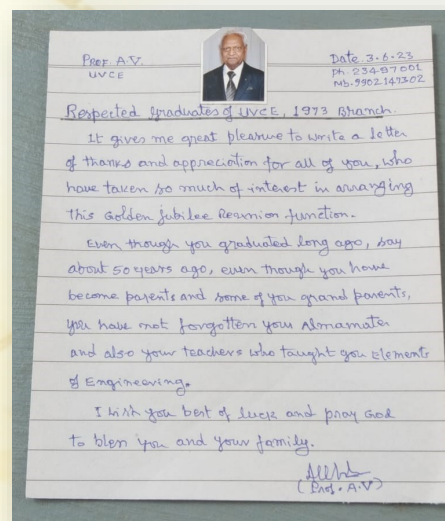 PROF. A.V.
UVCE
Date. 3-6-23
Ph. 23497001
Mb. 9902147302
Respected graduates of UVCE, 1973 Branch.
It gives me great pleasure to write a letter
of thanks and appreciation for all of you, who
have taken so much of interest in arranging
this Golden Jubilee Reunion function.
Even though you graduated long ago, say
about 50 years ago, even though you have
become parents and some of you grand parents,
you have not forgotten your Almamater
and also your teachers who taught you elements
of Engineering.
I wish you best of luck and pray God
to bless you and your family.
(Prof. A.V)